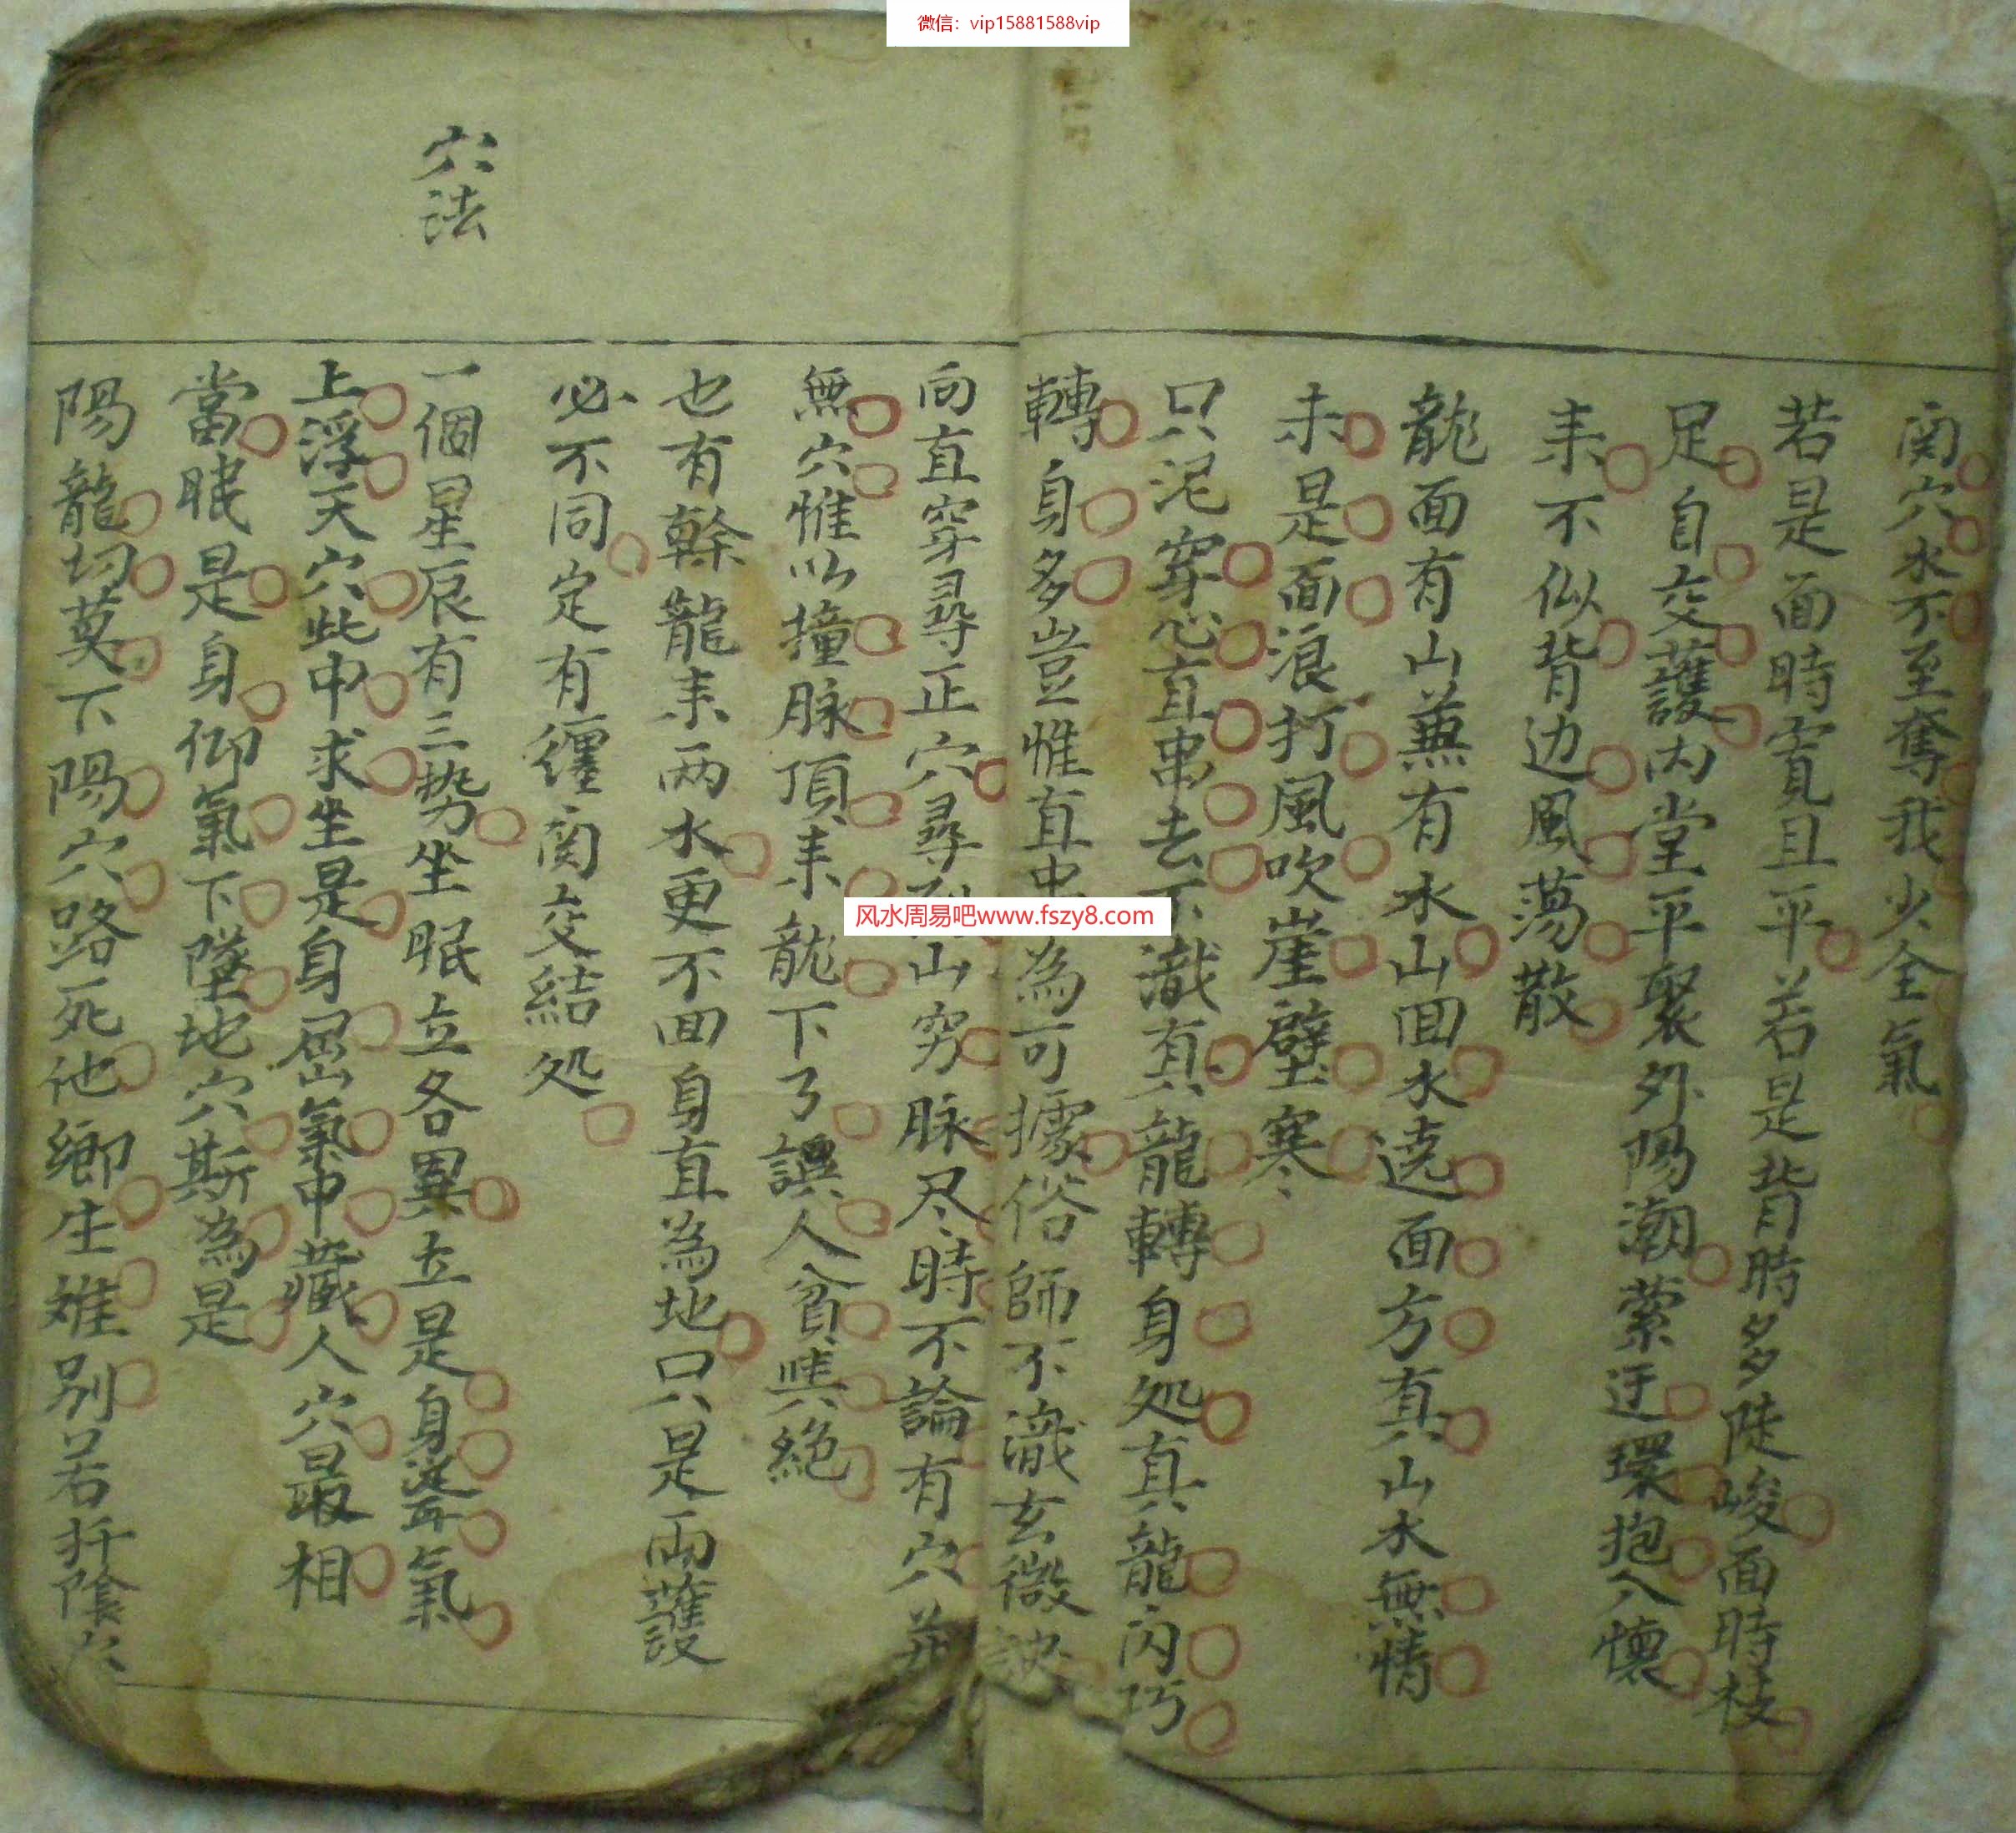 微信：vip15881588vip
関穴水不至奪我少全氣
若是面時寬且平若是背時多陡峻面時枝
足自交護內堂平聚外陽潮縈迂環抱入懷
耒不似背边風蕩散
龍面有山蕪有水山回水遶面方真山水無情
未是面浪打風吹崖壁寒
只泥穿心直串去不識真龍轉身処真龍內巧
轉身多豈惟直串為可據俗師不識玄微訣
向直穿尋正穴尋山穷脉尽時不論有穴并
無穴惟以撞脉頂耒龍下了誤人貧與絶
也有幹龍耒两水更不回身直為地只是両護
必不同定有纏関交結処
穴法
一個星辰有三势坐眠立各異立是身聳氣
上浮天穴此中求坐是身屈氣中藏人穴最相
當眠是身仰氣下墜地穴斯為是
陽龍切莫下陽穴路死他鄉生难别若扦陰
风水周易吧www.fszy8.com